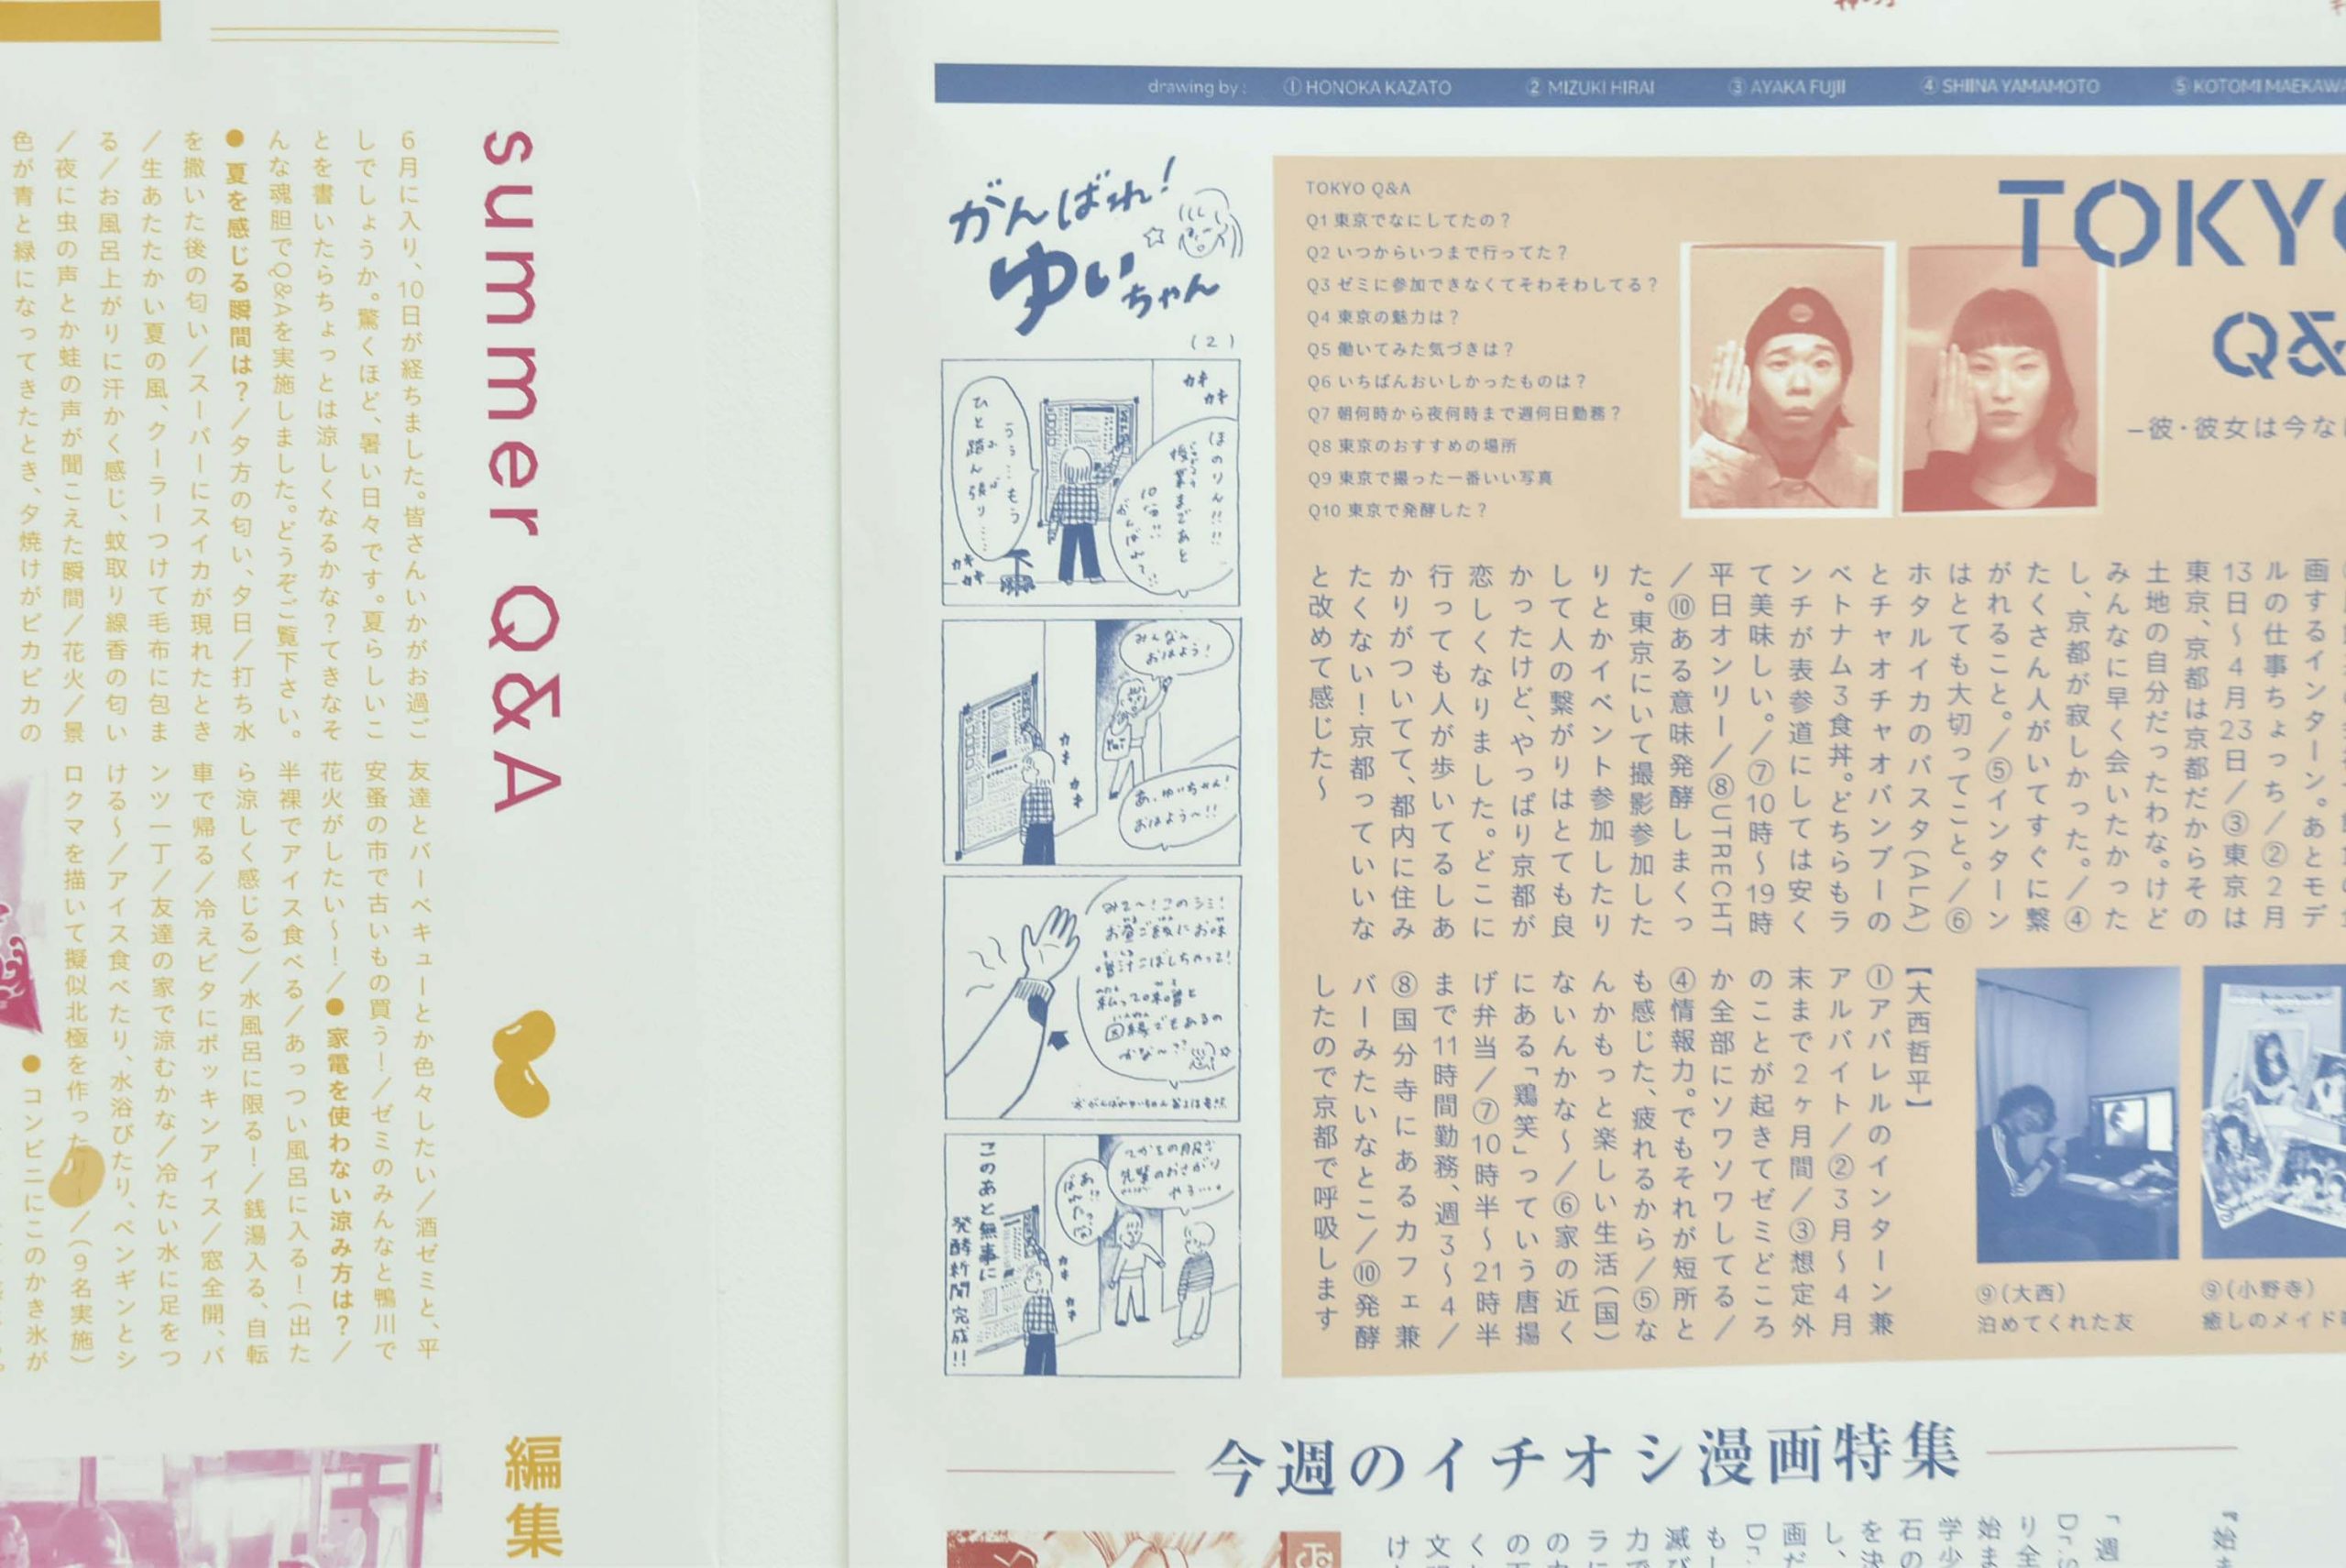 summer Q&A
6月に入り、10日が経ちました。皆さんいかがお過ご
しでしょうか。驚くほど、暑い日々です。夏らしいこ
とを書いたらちょっとは涼しくなるかな？てきなそ
んな魂胆でQ&Aを実施しました。どうぞご覧下さい。
● 夏を感じる瞬間は？／夕方の匂い、夕日／打ち水
を撒いた後の匂い／スーパーにスイカが現れたとき
／生あたたかい夏の風、クーラーつけて毛布に包ま
る／お風呂上がりに汗かく感じ、蚊取り線香の匂い
／夜に虫の声とか蛙の声が聞こえた瞬間／花火／景
色が青と緑になってきたとき、夕焼けがピカピカの
友達とバーベキューとか色々したい／酒ゼミと、平
安蚤の市で古いもの買う！／ゼミのみんなと鴨川で
花火がしたい～！／● 家電を使わない涼み方は？／
半裸でアイス食べる／あっつい風呂に入る！（出た
ら涼しく感じる）／水風呂に限る！／銭湯入る、自転
車で帰る／冷えピタにポッキンアイス／窓全開、パ
ンツ一丁／友達の家で涼むかな／冷たい水に足をつ
ける～／アイス食べたり、水浴びたり、ペンギンとシ
ロクマを描いて擬似北極を作ったり／（9名実施）
● コンビニにこのかき氷が
編集
drawing by : ① HONOKA KAZATO ② MIZUKI HIRAI ③ AYAKA FUJII ④ SHIINA YAMAMOTO ⑤ KOTOMI MAEKAWA
がんばれ！
ゆいちゃん
（2）
カキ
カキ
ほのりん!!!!
授業まであと
10分!!
がんばって!!
うぅ…もう
ひと踏ん張り……
カキ
カキ
みんな〜
おはよう！
カキ
カキ
あ、ゆいちゃん！
おはよう〜!!
みて〜！このシミ！
お昼ご飯にお味
噌汁こぼしちゃって！
私って味噌と
因縁でもあるの
かな〜??
てかその服さ
先輩のおさがり
やろ…。
あ!!
ばれたか
カキ
カキ
このあと無事に
発酵新聞完成!!
TOKYO
Q&
–彼・彼女は今な
TOKYO Q&A
Q1 東京でなにしてたの？
Q2 いつからいつまで行ってた？
Q3 ゼミに参加できなくてそわそわしてる？
Q4 東京の魅力は？
Q5 働いてみた気づきは？
Q6 いちばんおいしかったものは？
Q7 朝何時から夜何時まで週何日勤務？
Q8 東京のおすすめの場所
Q9 東京で撮った一番いい写真
Q10 東京で発酵した？
画するインターン。あとモデ
ルの仕事ちょっち／②2月
13日～4月23日／③東京は
東京、京都は京都だからその
土地の自分だったわな。けど
みんなに早く会いたかった
し、京都が寂しかった。／④
たくさん人がいてすぐに繋
がれること。／⑤インターン
はとても大切ってこと。／⑥
ホタルイカのパスタ(ALA)
とチャオチャオバンブーの
ベトナム3食丼。どちらもラ
ンチが表参道にしては安く
て美味しい。／⑦10時～19時
平日オンリー／⑧UTRECHT
／⑩ある意味発酵しまくっ
た。東京にいて撮影参加した
りとかイベント参加したり
して人の繋がりはとても良
かったけど、やっぱり京都が
恋しくなりました。どこに
行っても人が歩いてるしあ
かりがついてて、都内に住み
たくない！京都っていいな
と改めて感じた～
【大西哲平】
①アパレルのインターン兼
アルバイト／②3月～4月
末まで2ヶ月間／③想定外
のことが起きてゼミどころ
か全部にソワソワしてる／
④情報力。でもそれが短所と
も感じた、疲れるから／⑤な
んかもっと楽しい生活（国）
ないんかな～／⑥家の近く
にある「鶏笑」っていう唐揚
げ弁当／⑦10時半～21時半
まで11時間勤務、週3～4／
⑧国分寺にあるカフェ兼
バーみたいなとこ／⑩発酵
したので京都で呼吸します
⑨（大西）
泊めてくれた友
⑨（小野寺）
癒しのメイド
今週のイチオシ漫画特集